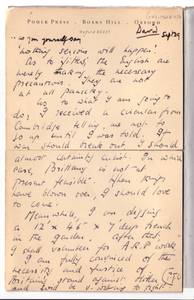 PODER PRESS - BOARS HILL - OXFORD
David
Sept 29
"Nothing serious will happen!
As to gilted, the English are
merely making the necessary
precautions. They are not
at all panicky.
As to what I am going to
do, I received a circular from
Cambridge telling me not to
go up until I was told. If
war should break out I should
almost certainly enlist. In which
case, Brittany is not at
present feasible. When things
have blown over, I should love
to come!
Meanwhile, I am digging
a 12 x 4½ x 7 deep trench
in the garden, after that
I shall volunteer for A.R.P. work.
I am fully convinced of the
necessity and justice of
Britain's stand against Hitler,
and will be a to fight